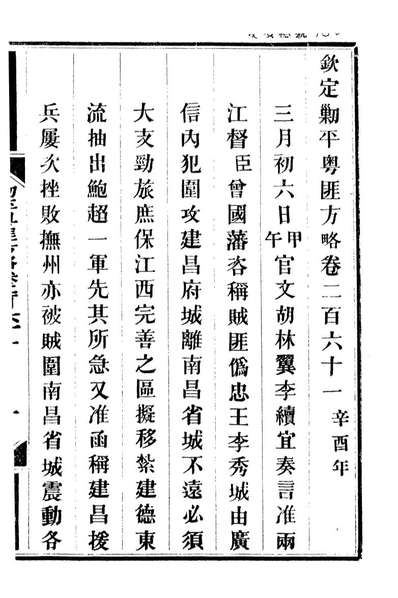 欽定勦平粵匪方略卷二百六十一 辛酉年
三月初六日甲午官文胡林翼李續宜奏言准兩
江督臣曾國藩咨稱賊匪僞忠王李秀城由廣
信內犯圍攻建昌府城離南昌省城不遠必須
大支勁旅庶保江西完善之區擬移紮建德東
流抽出鮑超一軍先其所急又准函稱建昌援
兵屢次挫敗撫州亦被賊圍南昌省城震動各